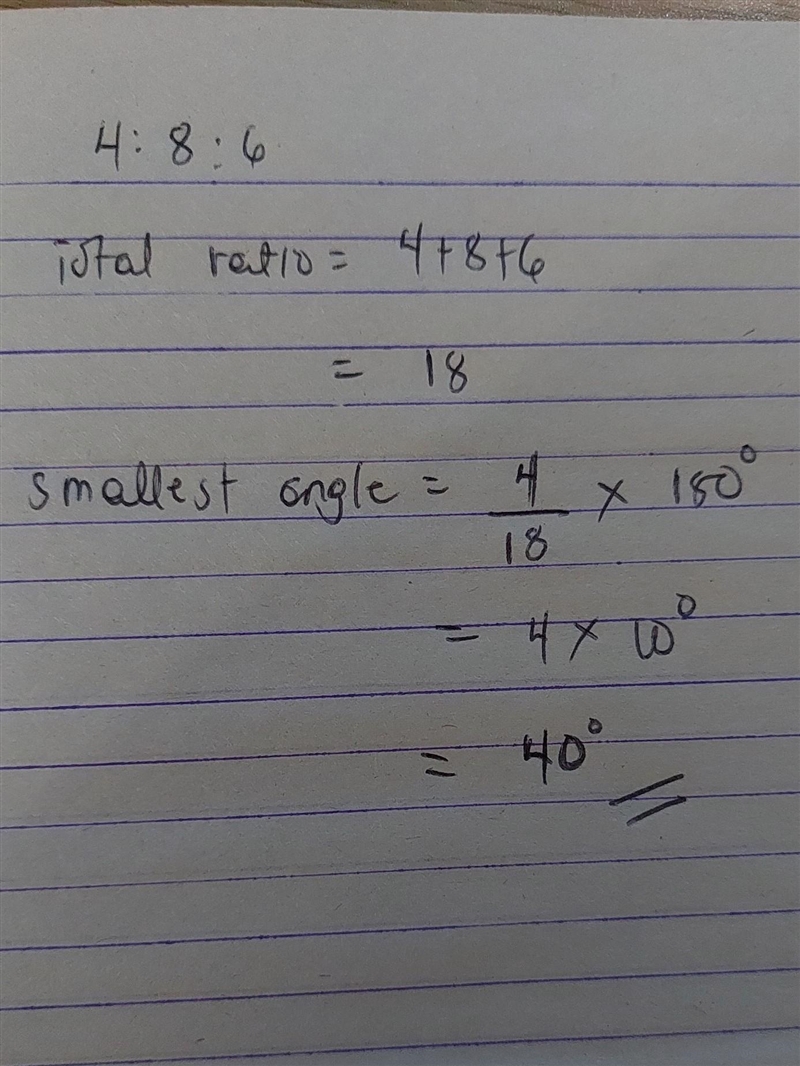 4 : 8 : 6
Total ratio = 4+8+6
= 18
smallest angle = 4/18 × 180°
= 4 × 10°
= 40°